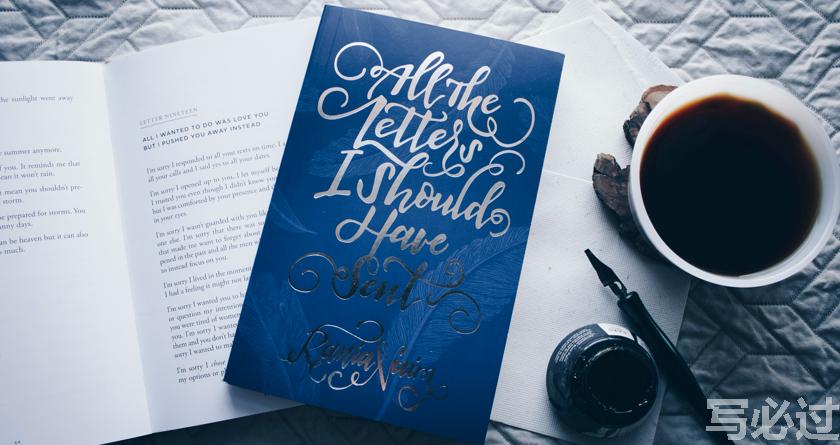 he sunlight went away
summer anymore.
f you. It reminds me that
ean it won't rain.
t mean you shouldn't pre-
storm.
be prepared for storms. You
nny days.
can be heaven but it can also
s much.
64
LETTER NINETEEN
ALL I WANTED TO DO WAS LOVE YOU
BUT I PUSHED YOU AWAY INSTEAD
I'm sorry I responded to all your texts on time. I
all your calls and I said yes to all your dates.
I'm sorry I opened up to you, I let myself be
I trusted you even though I didn't know
but I was comforted by your presence and
in your eyes.
I'm sorry I wasn't guarded with you like
one else. I'm sorry that there was
that made me want to forget about
pened in the past and all the men
to instead focus on you.
I'm sorry I lived in the moment
I had a feeling it might not
I'm sorry I wanted you to
or question my intentions
you were tired of women
them and you don't
sorry I wanted to
I'm sorry I
my options or
All the
Letters
I Should
Have
Sent
Rania Naim
写必过